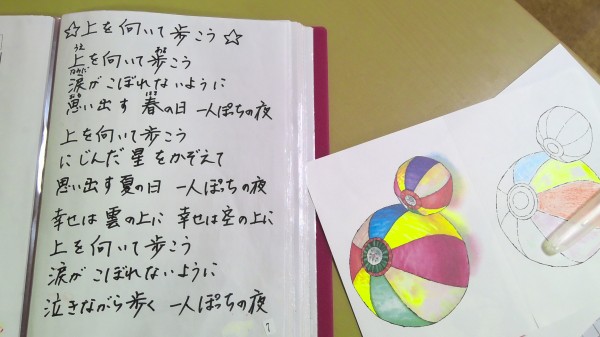 ☆上を向いて歩こう☆
うえ ある
上を向いて歩こう
なみだ
涙がこぼれないように
おも はる
思い出す 春の日 一人ぽっちの夜
上を向いて歩こう
にじんだ星をかぞえて
思い出す夏の日 一人ぽっちの夜
幸せは雲の上に 幸せは空の上に
上を向いて歩こう
涙がこぼれないように
泣きながら歩く 一人ぽっちの夜
7